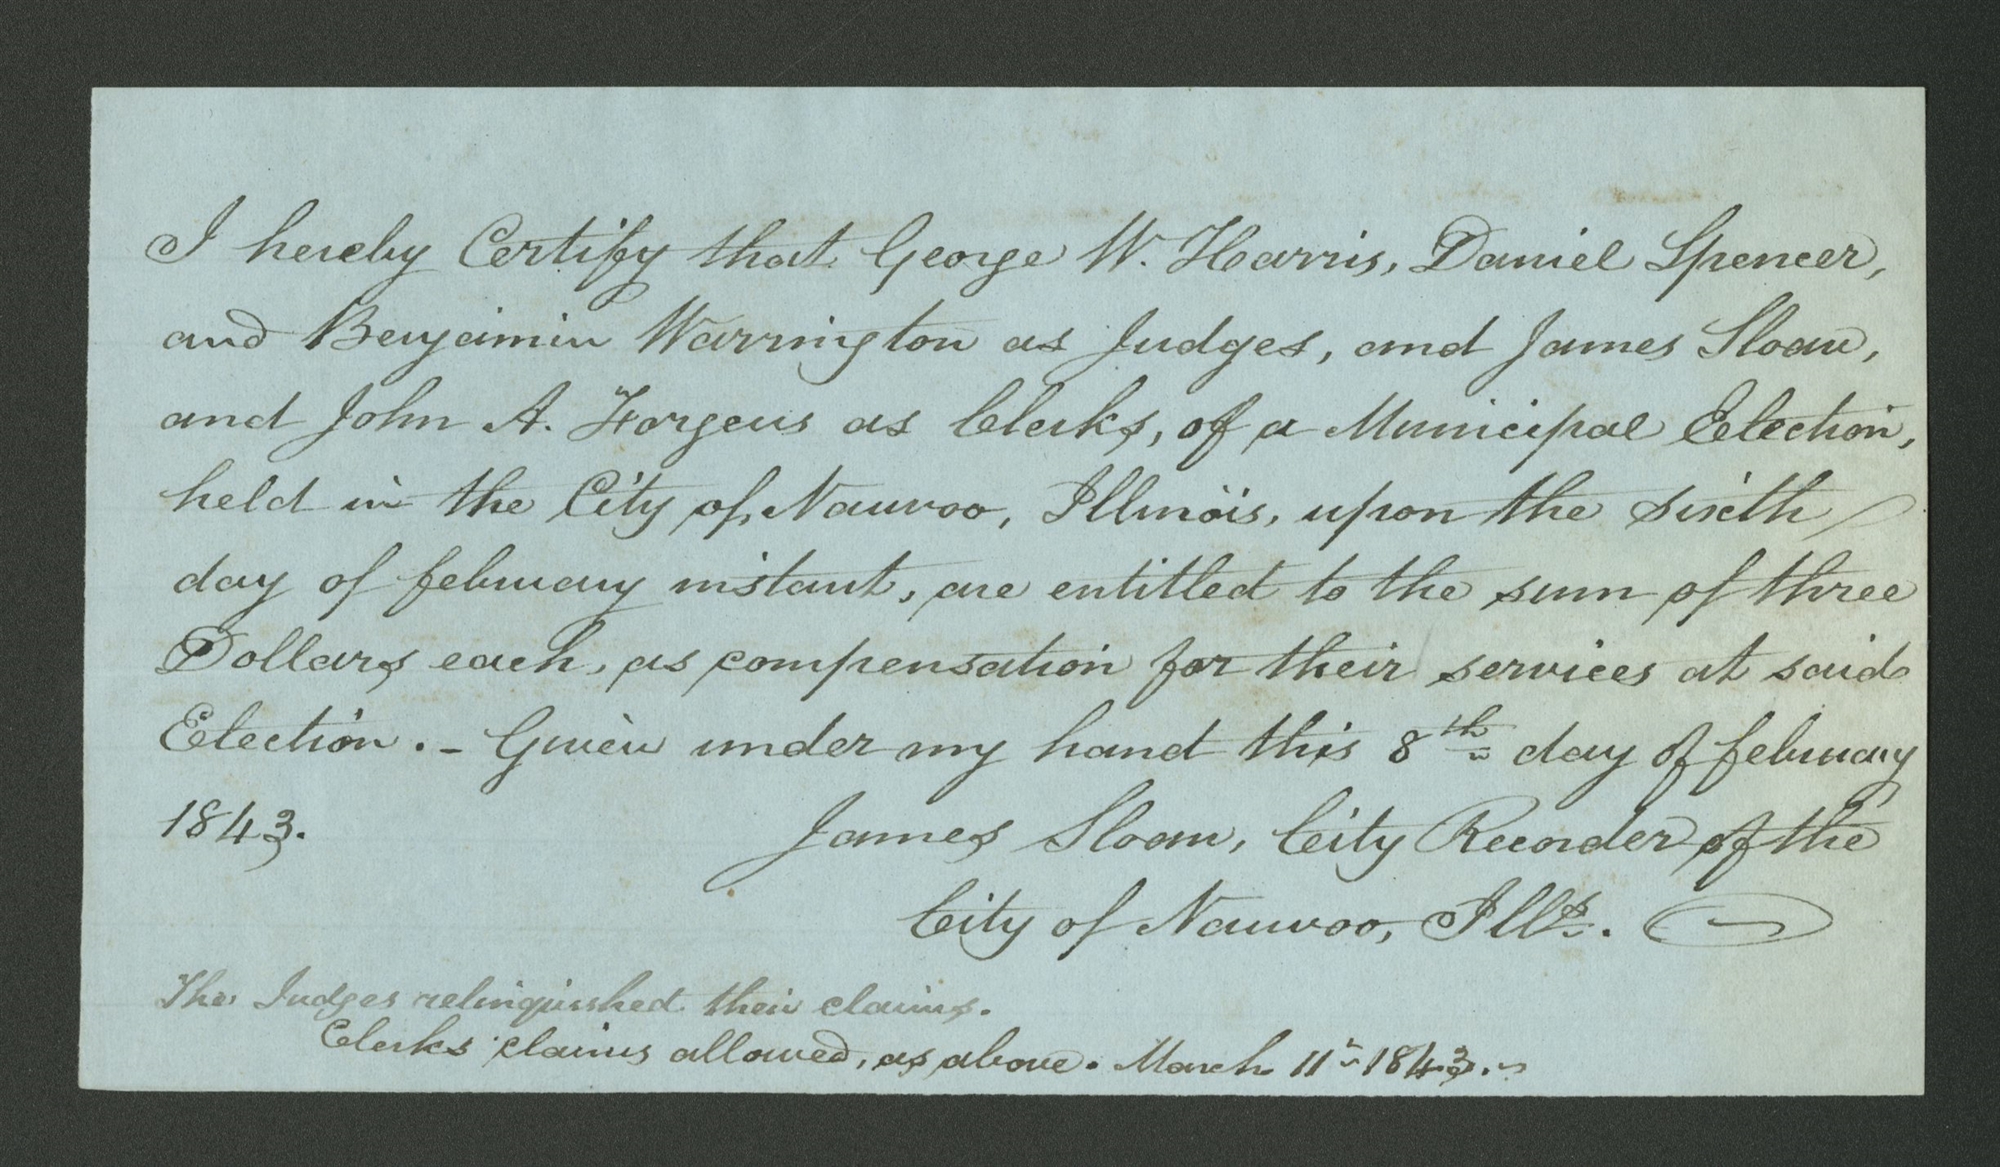 I hereby Certify that George W. Harris, Daniel Spencer,
and Benjamin Warrington as Judges, and James Sloan,
and John A. Forgeus as Clerks, of a Municipal Election,
held in the City of Nauvoo, Illinois, upon the sixth
day of february instant, are entitled to the sum of three
Dollars each, as compensation for their services at said
Election. – Given under my hand this 8th day of february
1843.
James Sloan, City Recorder of the
City of Nauvoo, Ills.
The Judges relinquished their claims.
Clerks claims allowed, as above. March 11th 1843.